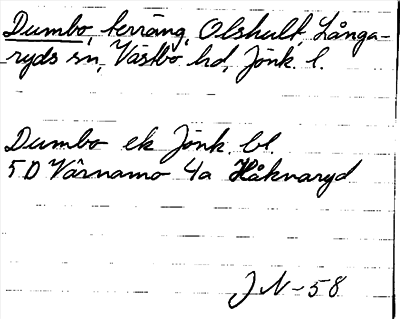 Dumbo, terräng, Olshult, Långa-
ryds sn, Västbo hd, Jönk. l.
Dumbo ek Jönk. bl.
5D Värnamo 4a Håknaryd
J N-58